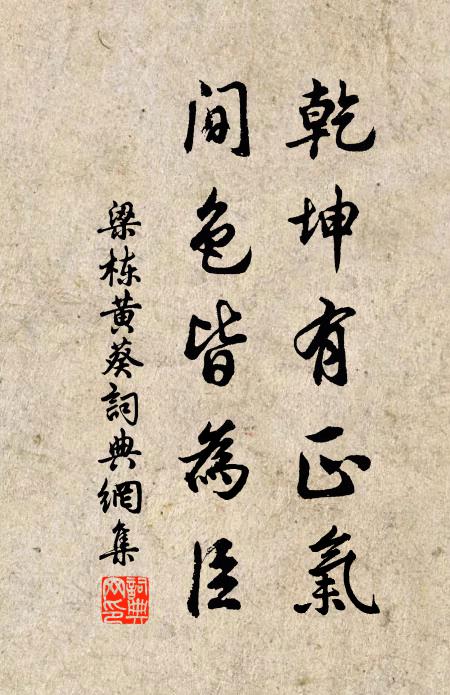 乾坤有正氣
间色皆為臣
梁栋黄葵詞典網集
詞典文印